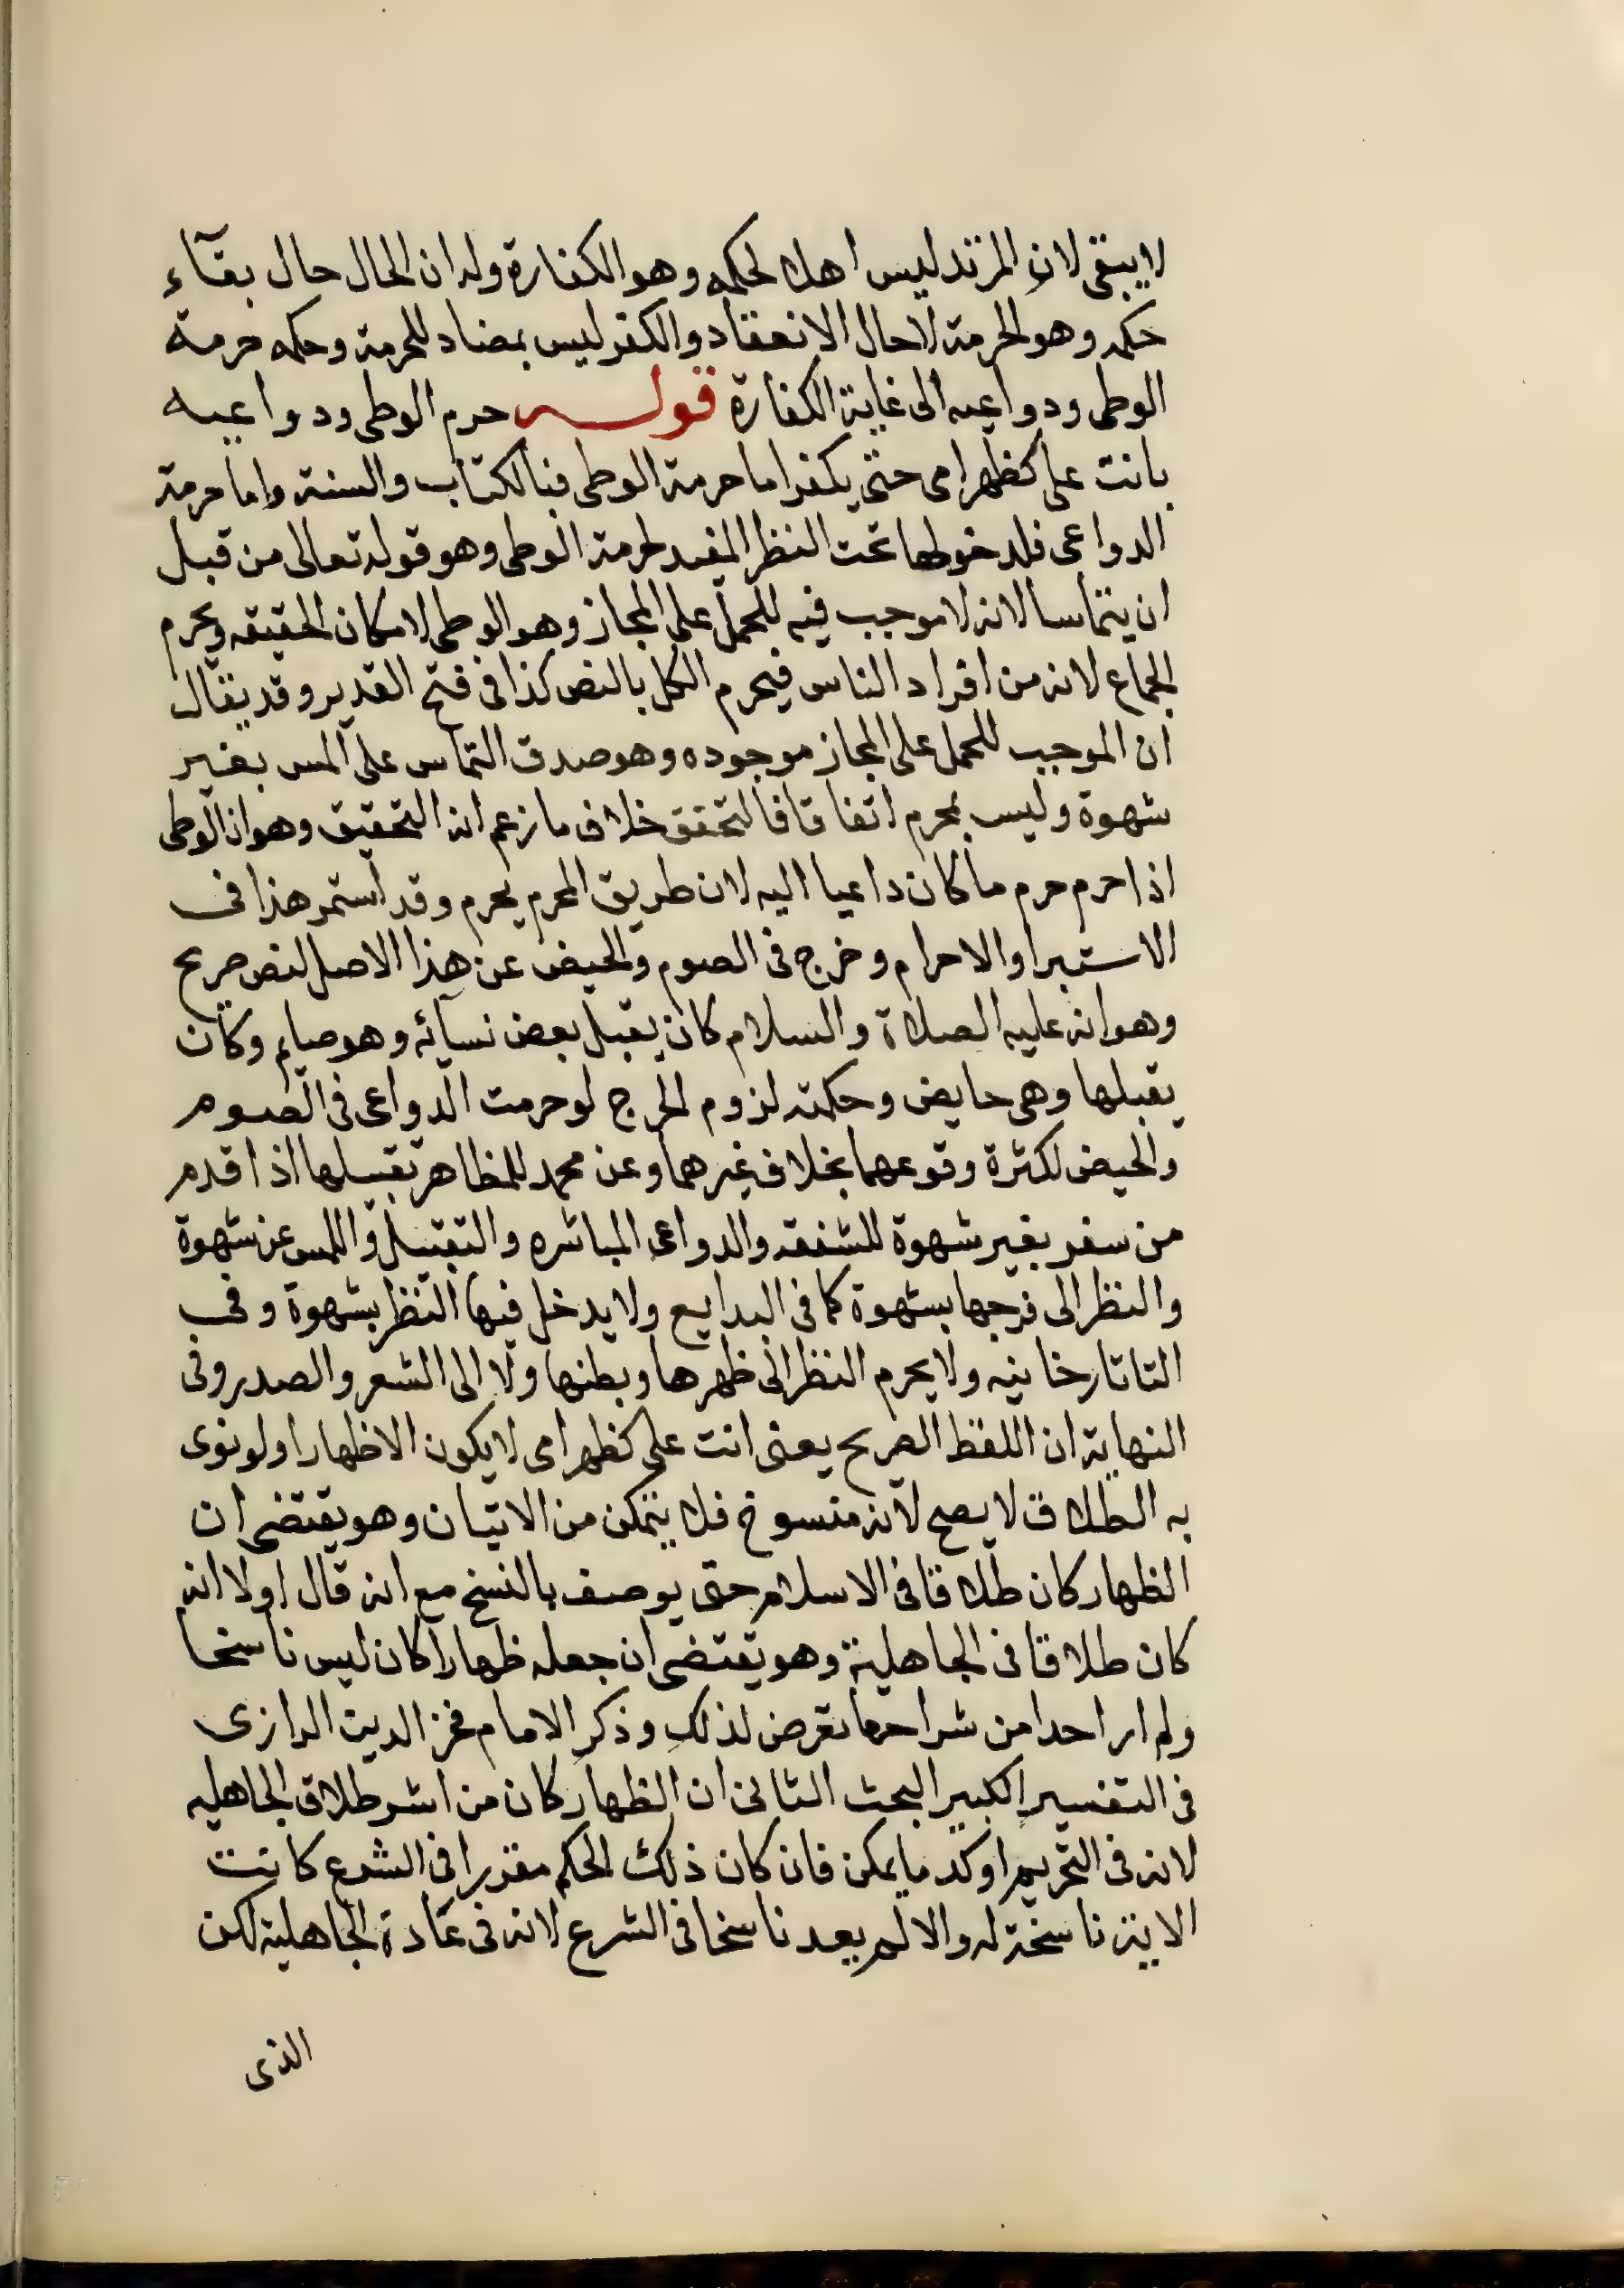 لا يبقى لان المرتد ليس اهلا لحكمه وهو الكفارة وله ان الحال حال بقآء
حكمه وهو الحرمة لا حال الانعقاد والكفر ليس بمضاد للحرمة وحكمه حرمة
الوطى ودواعيه الى غاية الكفارة قوله حرم الوطى ودواعيه
بانت على كظهر امى حتى يكفر اما حرمة الوطى فبالكتاب والسنة واما حرمة
الدواعى فلدخولها تحت النظر المفيد لحرمة الوطى وهو قوله تعالى من قبل
ان يتماسا لانه لا موجب فيه للحمل على المجاز وهو الوطى لامكان الحقيقه ويحرم
الجماع لانه من افراد الناس فيحرم الكل بالنص كذا فى فتح القدير وقد يقال
ان الموجب للحمل على المجاز موجوده وهو صدق التماس على المس بغير
شهوة وليس بمحرم اتفاقا فالتحقق خلاف ما زعم انه التحقيق وهو ان الوطى
اذا حرم حرم ما كان داعيا اليه لان طريق المحرم يحرم وقد استمر هذا فى
الاستبرا والاحرام وخرج فى الصوم والحيض عن هذا الاصل لنص صريح
وهو انه عليه الصلاة والسلام كان يقبل بعض نسآئه وهو صايم وكان
يقبلها وهى حايض وحكمته لزوم الحرج لو حرمت الدواعى فى الصوم
والحيض لكثرة وقوعهما بخلاف غيرهما وعن محمد للمظاهر تقبيلها اذا قدم
من سفر بغير شهوة للشفقه والدواعى المباشره والتقبيل واللمس عن شهوة
والنظر الى فرجها بشهوة كما فى البدايع ولا يدخل فيها النظر بشهوة وفى
التاتارخانيه ولا يحرم النظر الى ظهرها وبطنها ولا الى الشعر والصدر وفى
النهاية ان اللفظ الصريح يعنى انت على كظهر امى لا يكون الاظهارا ولو نوى
به الطلاق لا يصح لانه منسوخ فلا يتمكن من الاتيان وهو يقتضى ان
الظهار كان طلاقا فى الاسلام حتى يوصف بالنسخ مع انه قال اولا انه
كان طلاقا فى الجاهلية وهو يقتضى ان جعله ظهارا كان ليس ناسخا
ولم ار احدا من شراحها تعرض لذلك وذكر الامام فخر الدين الرازى
فى التفسير الكبير البحث الثانى ان الظهار كان من اشر طلاق الجاهليه
لانه فى التحريم اوكد ما يمكن فان كان ذلك الحكم مقررا فى الشرع كانت
الاية ناسخة له والا لم يعد ناسخا فى الشرع لانه فى عادة الجاهلية لكن
الذى